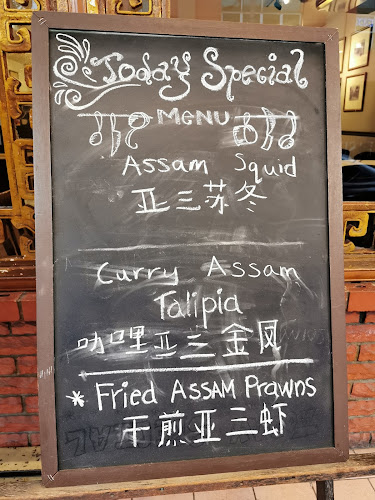 Today Special
MENU
Assam Squid
亚三苏冬
Curry Assam
Talipia
咖哩亚三金凤
* Fried ASSAM Prawns
干煎亚三虾